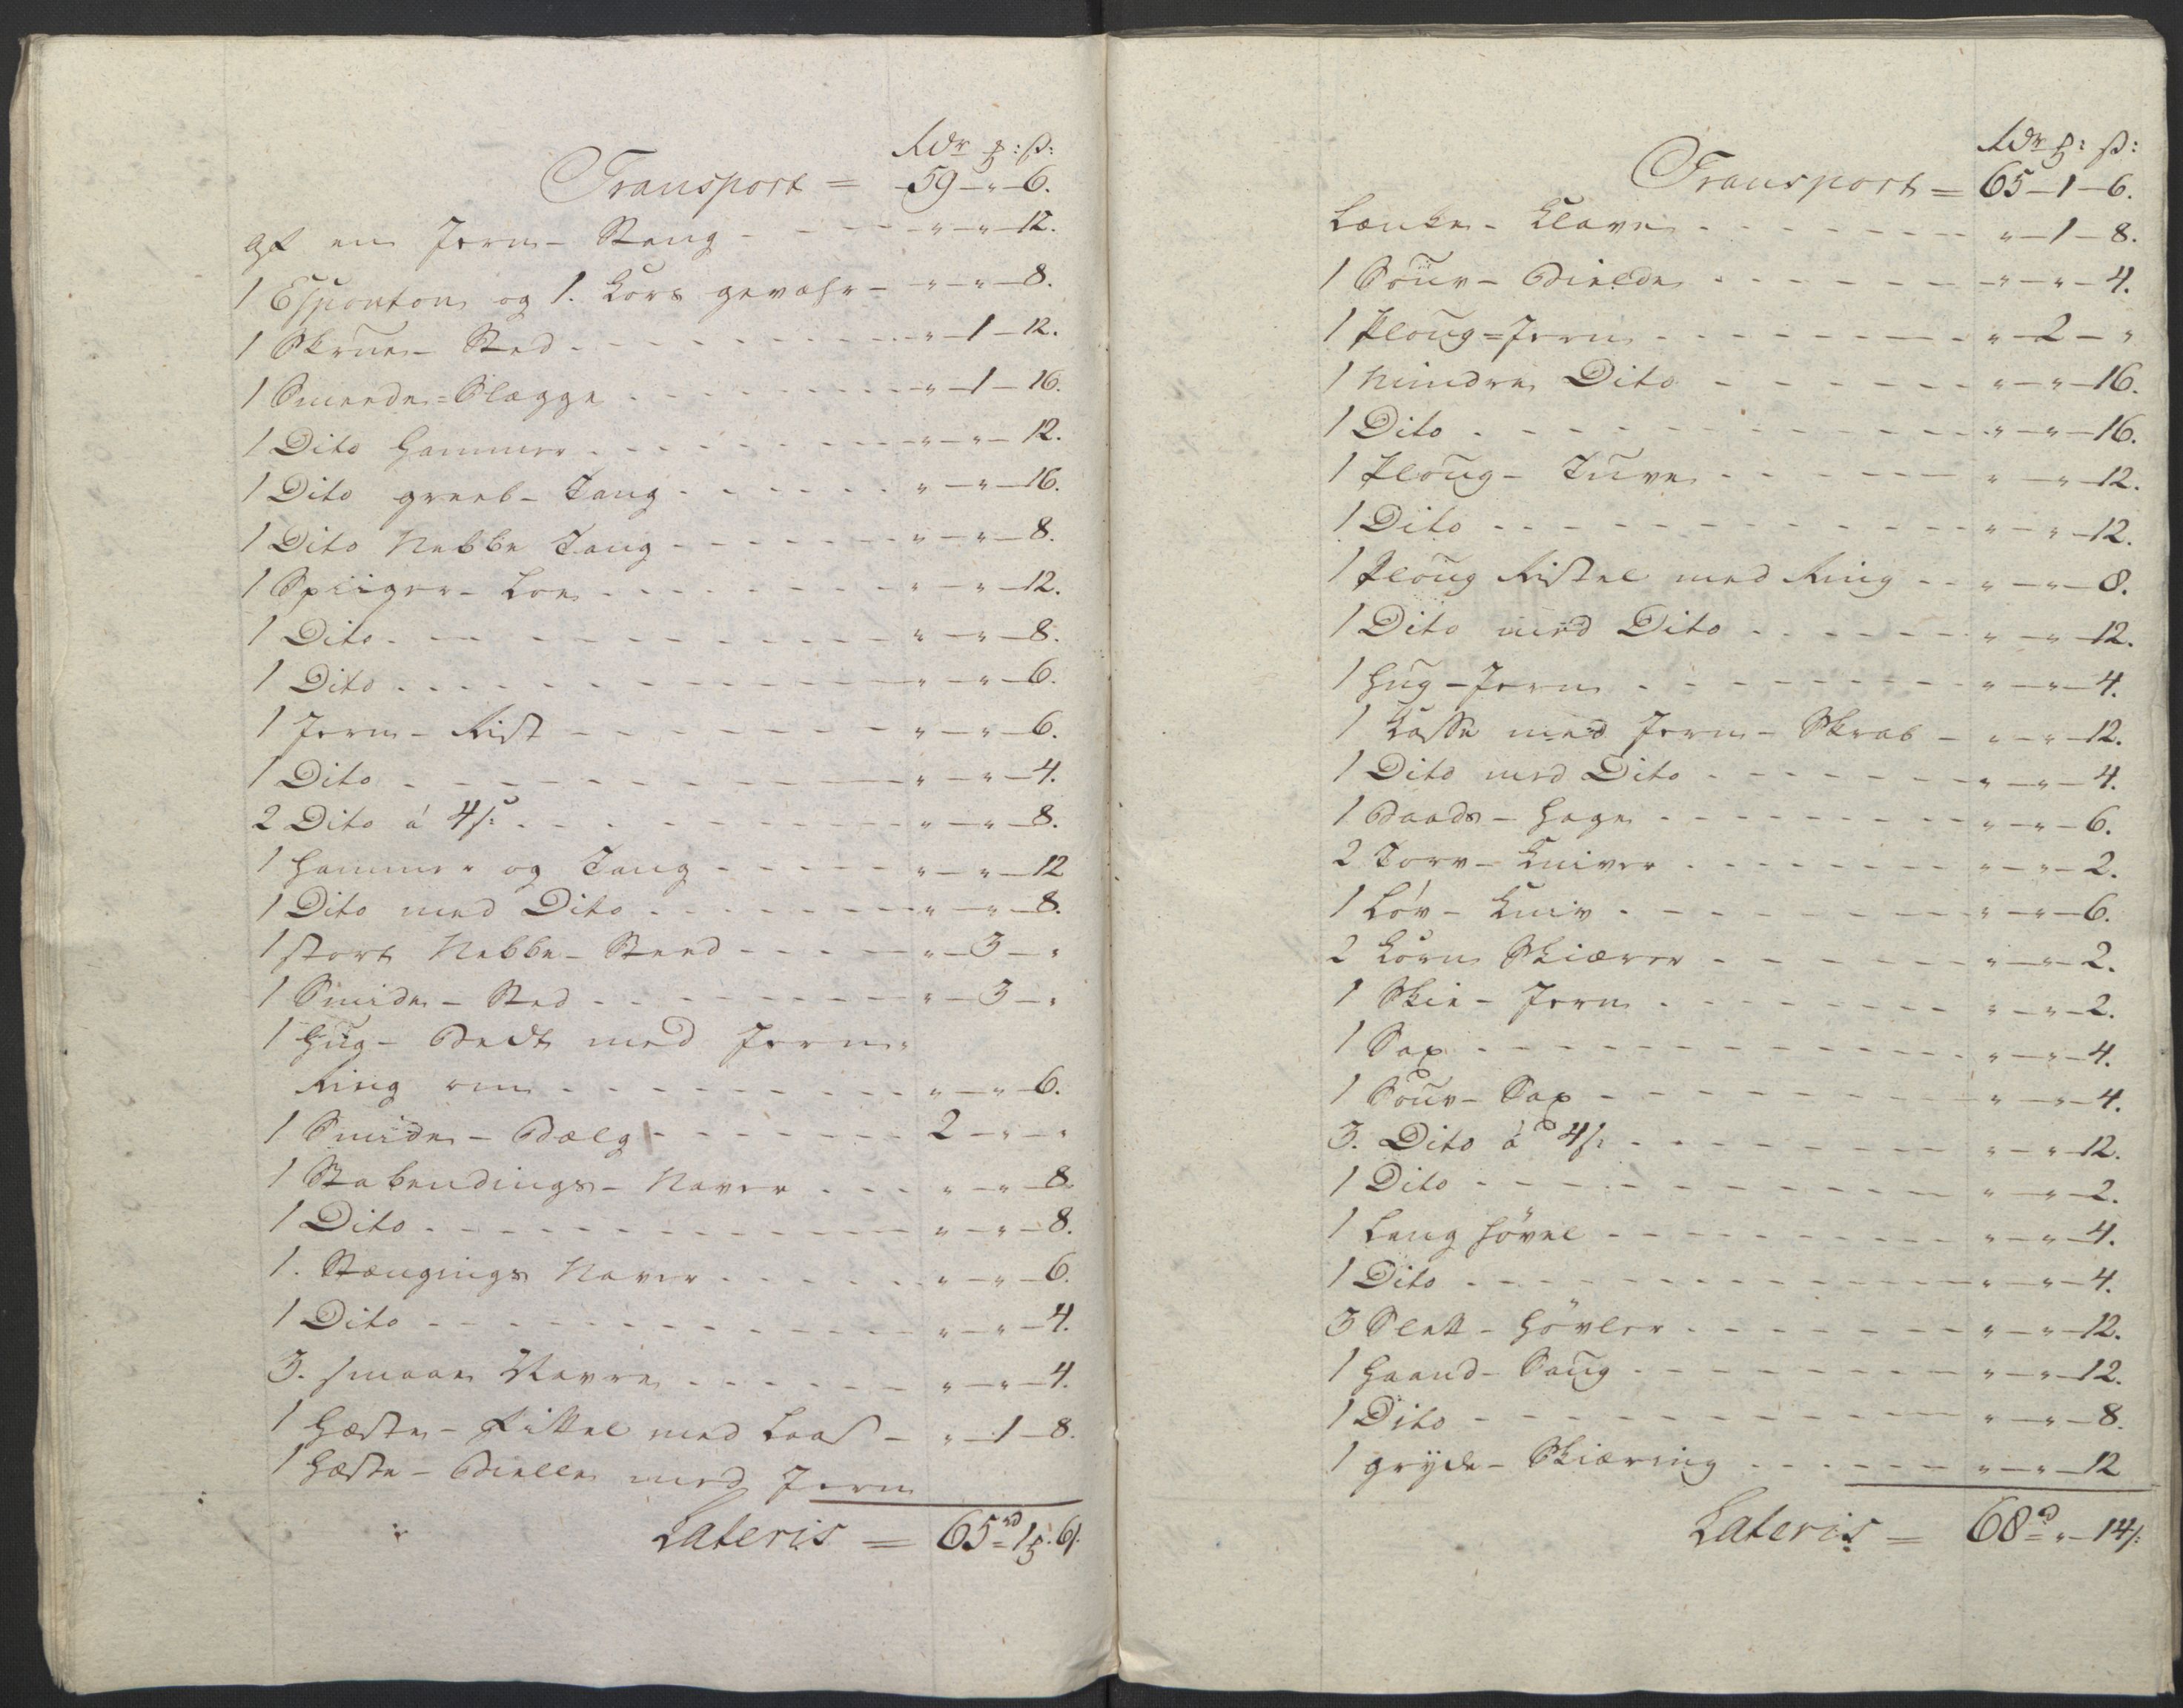 Rdr ℥: ß:
Transport = 59 — " — 6.
af en Jern-Stang - - - - " — " — 12.
1 Esponton og 1. Kors gevæhr - " — " — 8.
1 Skrue-Sted - - - - " — 1 — 12.
1 Smeede=Slægge - - - - " — 1 — 16.
1 Dito Hammer - - - - " — " — 12.
1 Dito greeb-Tang - - - - " — " — 16.
1 Dito Nebbe Tang - - - - " — " — 8.
1 Spiiger-Loe - - - - " — " — 12.
1 Dito - - - - " — " — 8.
1 Dito - - - - " — " — 6.
1 Jern-Rist - - - - " — " — 6.
1 Dito - - - - " — " — 4.
2 Dito á 4 ß: - - - - " — " — 8.
1 Hammer og Tang - - - - " — " — 12
1 Dito med Dito - - - - " — " — 8.
1 stort Nebbe-Steed - - - - " — 3 — "
1 Smide-Sted - - - - " — 3 — "
1 Hug-Bedt med Jern-
Ring om - - - - " — " — 6.
1 Smide-Bælg - - - - 2 — " — "
1 Stabendings-Naver - - - " — " — 8.
1 Dito - - - - " — " — 8.
1. Stængings Naver - - - - " — " — 6.
1 Dito - - - - " — " — 4.
3. smaae Navre - - - - " — " — 4.
1 Hæste-Fittel med Laas - " — 1 — 8.
1 Hæste-Bielle med Jern
Lateris = 65 rd 1 ℥. 6 ß:
Rdr ℥: ß:
Transport = 65 — 1 — 6.
Lænke-Klave - - - - " — 1 — 8.
1 Souv-Bielde - - - - " — " — 4.
1 Ploug=Jern - - - - " — 2 — "
1 mindre Dito - - - - " — " — 16.
1 Dito - - - - " — " — 16.
1 Ploug-Tuve - - - - " — " — 12.
1 Dito - - - - " — " — 12.
1 Ploug Ristel med Ring - - " — " — 8.
1 Dito med Dito - - - - " — " — 12.
1 Hug-Jern - - - - " — " — 4.
1 Kasse med Jern-Skrab - " — " — 12.
1 Dito med Dito - - - - " — " — 4.
1 Baads-Hage - - - - " — " — 6.
2 Torv-Kniver - - - - " — " — 2.
1 Løv-Kniv - - - - " — " — 6.
2 Korn Skiærer - - - - " — " — 2.
1 Skie-Jern - - - - " — " — 2.
1 Sax - - - - " — " — 4.
1 Souv-Sax - - - - " — " — 4.
3. Dito á 4 ß: - - - - " — " — 12.
1 Dito - - - - " — " — 2.
1 Lang Høvel - - - - " — " — 4.
1 Dito - - - - " — " — 4.
3 Slett-Høvler - - - - " — " — 12.
1 Haand-Saug - - - - " — " — 12.
1 Dito - - - - " — " — 8.
1 gryde-Skiæring - - - - " — " — 12
Lateris = 68 rd " — 14 ß: